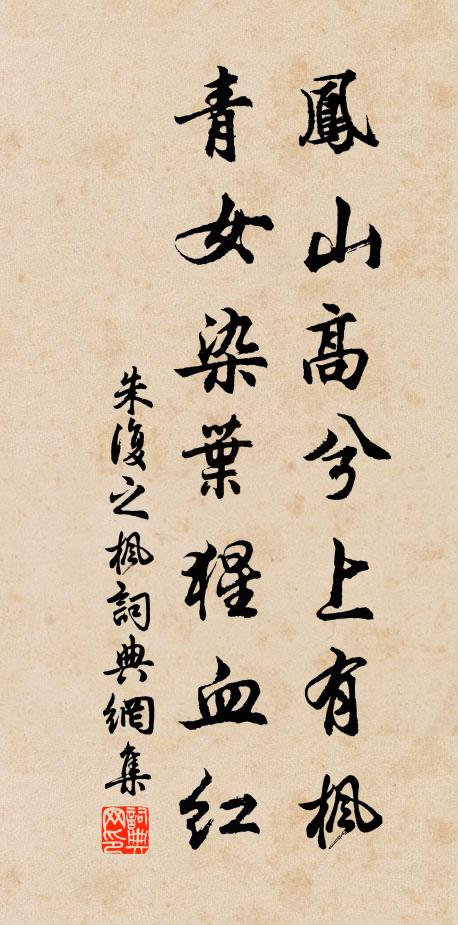 鳳山高兮上有楓
青女染葉猩血紅
朱復之楓詞典網集
詞典網印